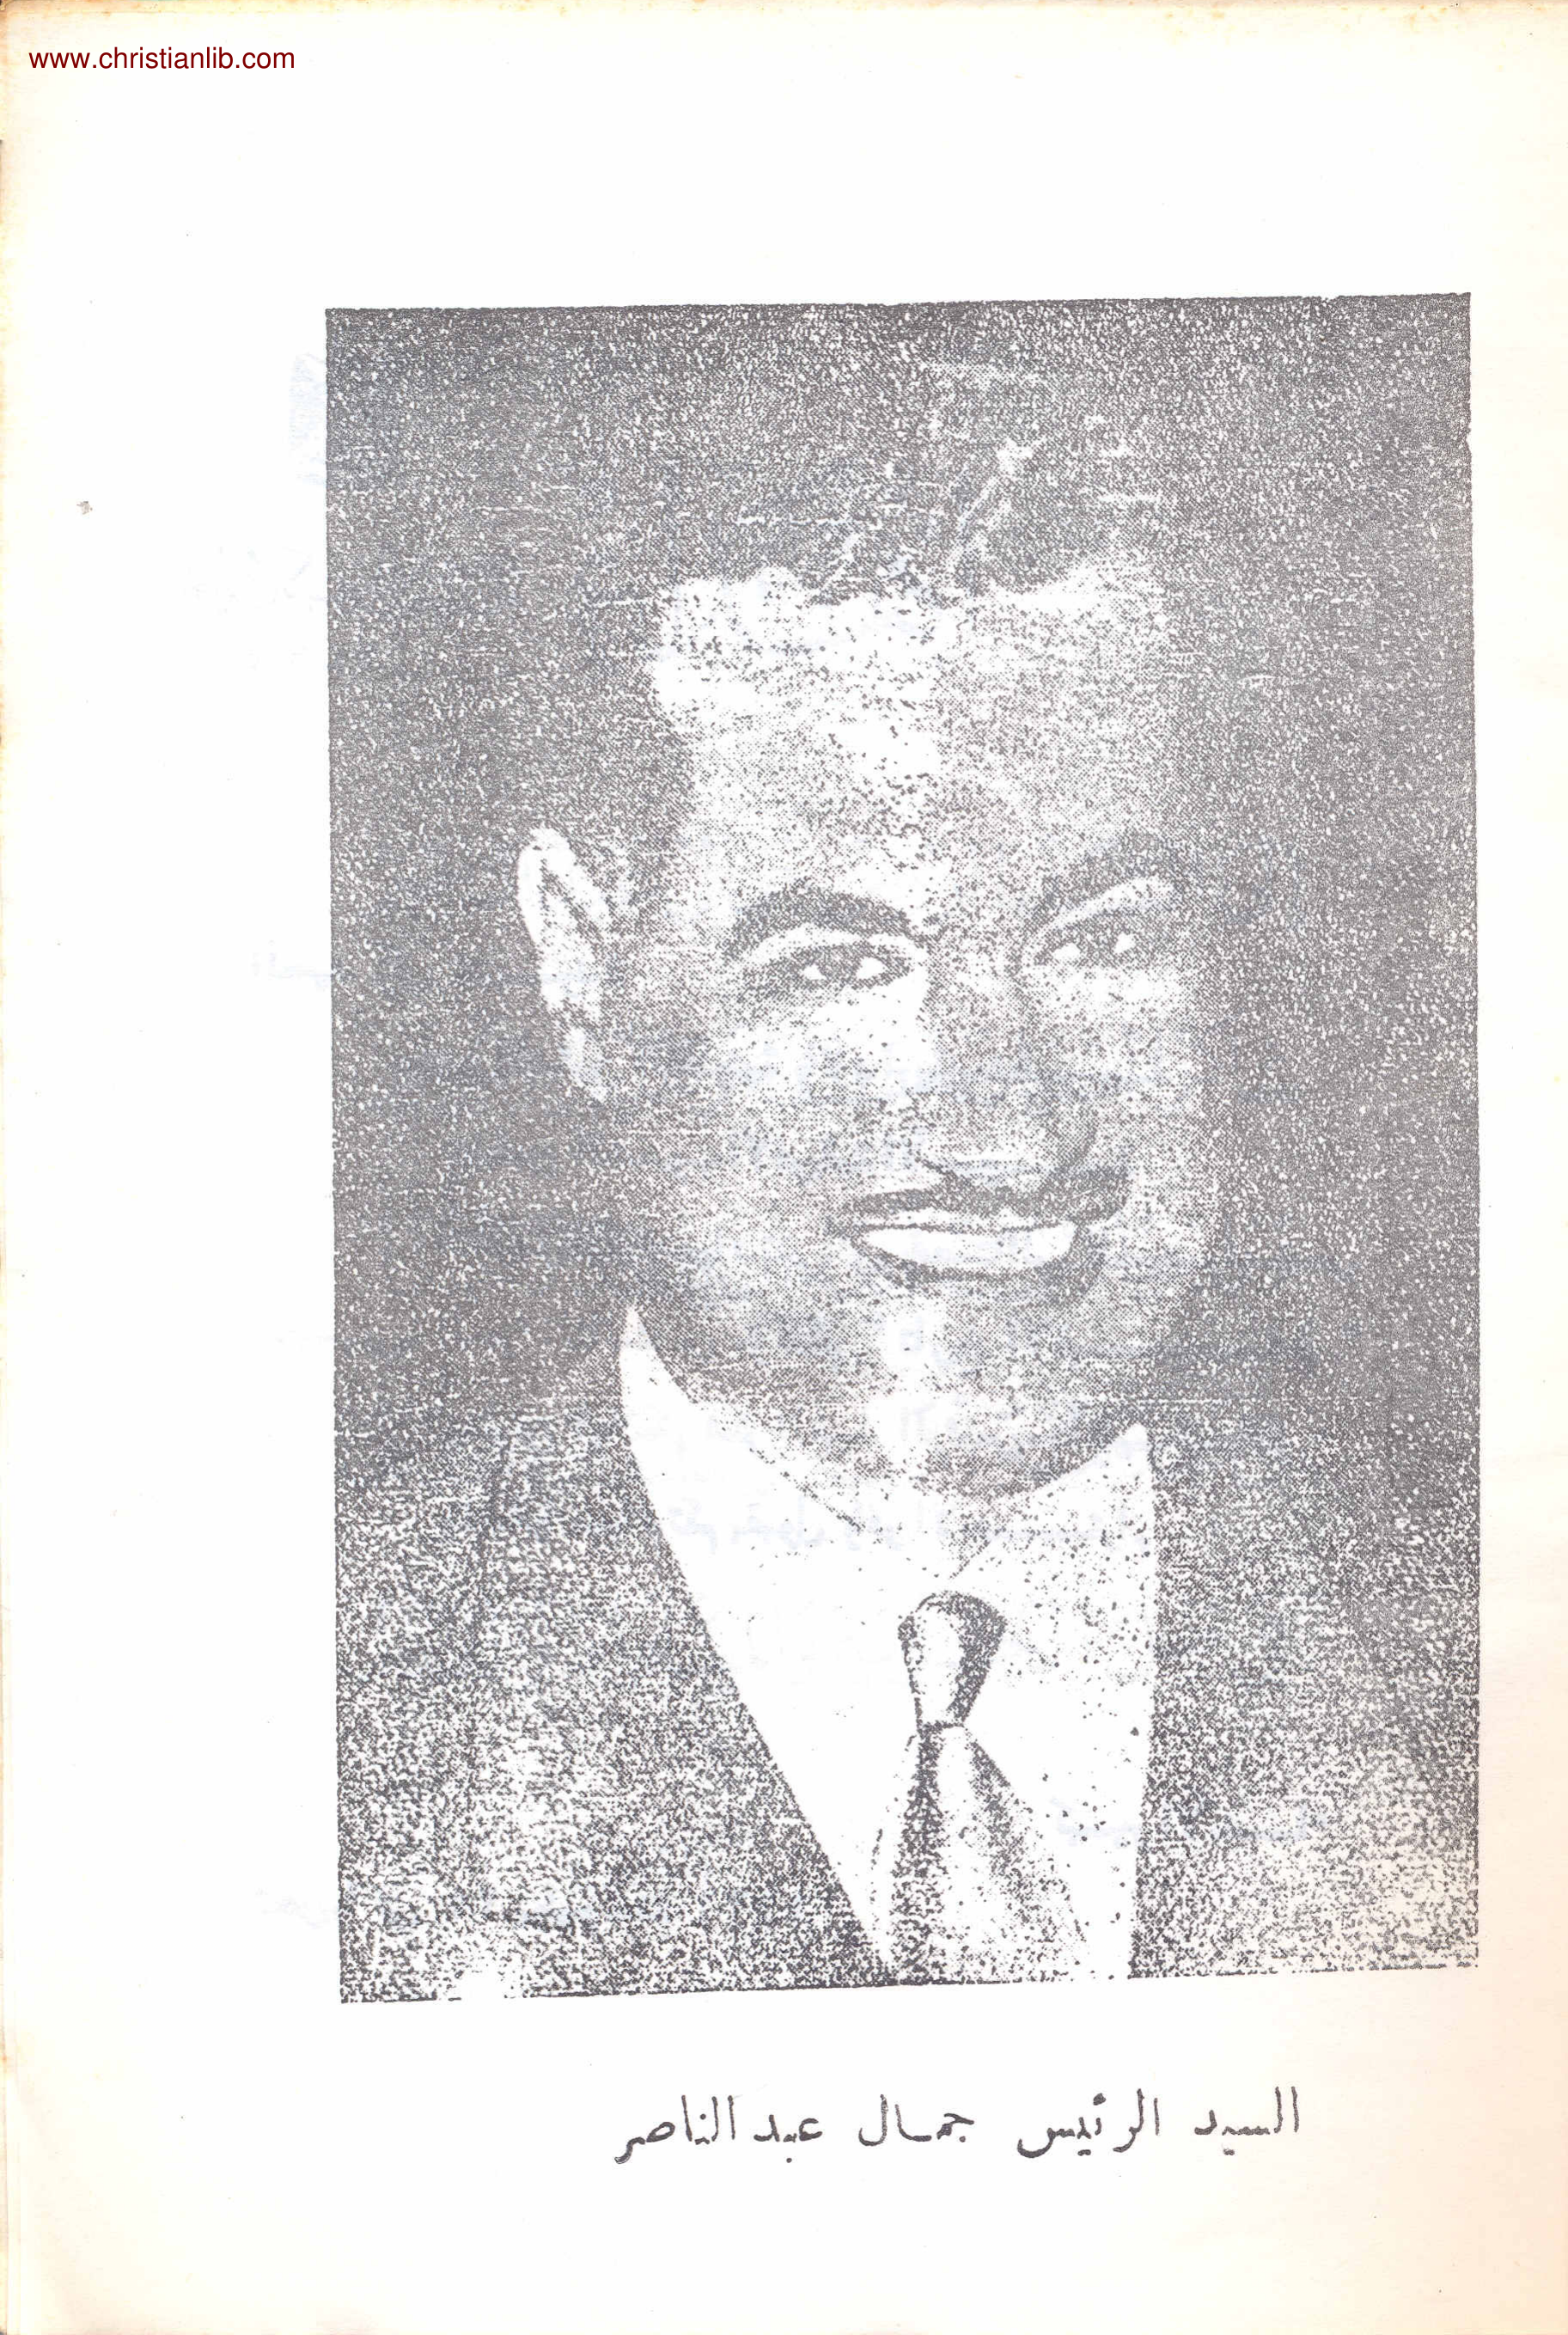 www.christianlib.com
السيد الرئيس جمال عبد الناصر